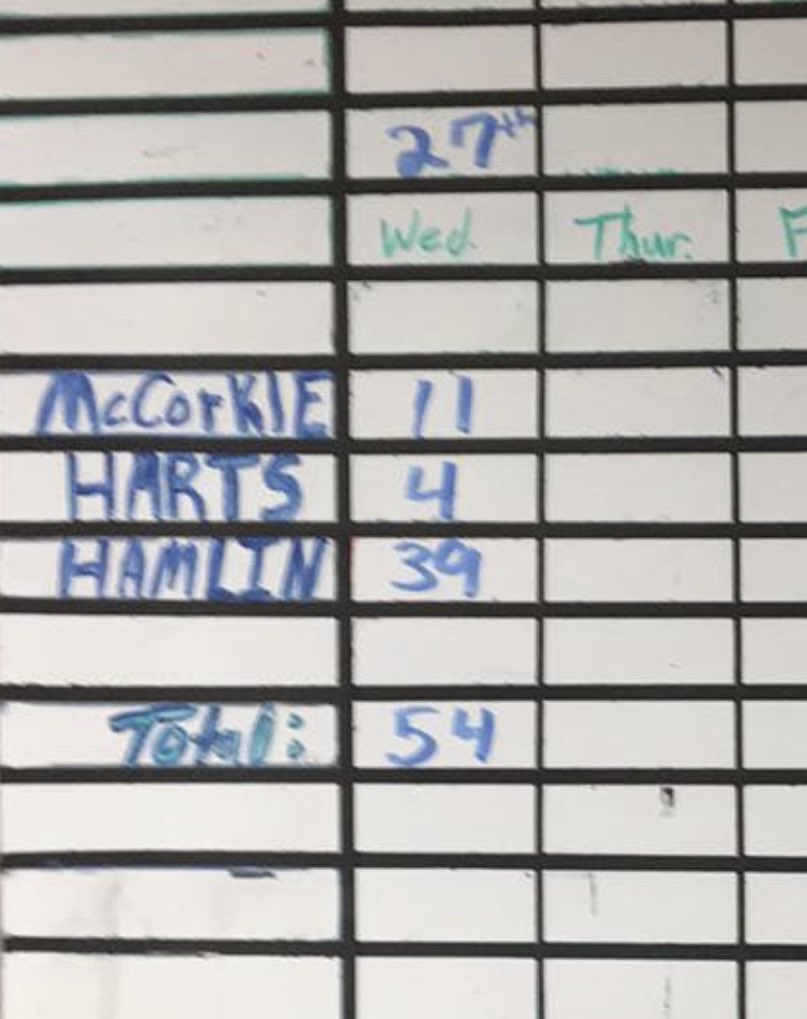 27th
Wed. Thur. F
McCorklE 11
HARTS 4
HAMLIN 39
Total: 54